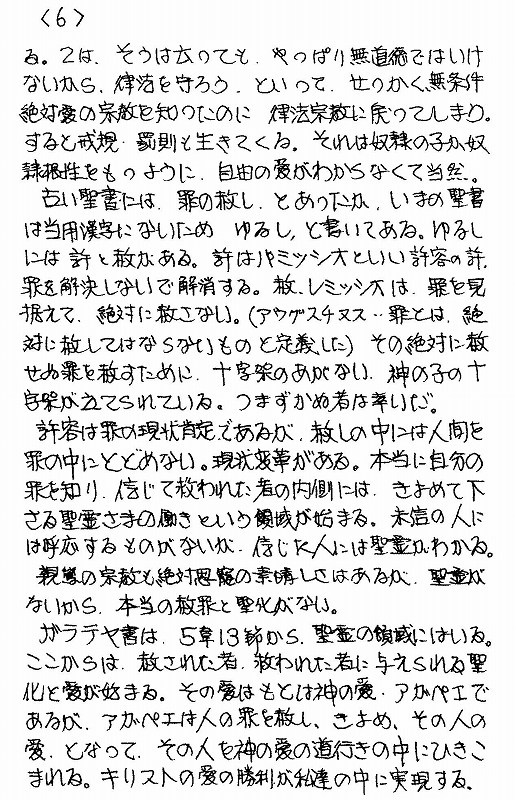 〈6〉
る。2は、そうは云っても、やっぱり無道徳ではいけ
ないから、律法を守ろう、といって、せっかく無条件
絶対愛の宗教を知ったのに 律法宗教に戻ってしまう。
すると戒規・罰則も生きてくる。それは奴隷の子が奴
隷根性をもつように、自由の愛がわからなくて当然。
古い聖書には、罪の赦し、とあったが、いまの聖書
は当用漢字にないため ゆるし、と書いてある。ゆるし
には 許と赦がある。許はパミッシオといい許容の許、
罪を解決しないで解消する。赦、レミッシオは、罪を見
据えて、絶対に赦さない。(アウグスチヌス‥罪とは、絶
対に赦してはならないものと定義した) その絶対に赦
せぬ罪を赦すために、十字架のあがない、神の子の十
字架が立てられている。つまずかぬ者は幸いだ。
許容は罪の現状肯定であるが、赦しの中には人間を
罪の中にとどめない。現状変革がある。本当に自分の
罪を知り、信じて救われた者の内側には、きよめて下
さる聖霊さまの働きという領域が始まる。未信の人に
は呼応するものがないが、信じた人には聖霊がわかる。
親鸞の宗教も絶対恩寵の素晴しさはあるが、聖霊が
ないから、本当の赦罪と聖化がない。
ガラテヤ書は、5章13節から、聖霊の領域にはいる。
ここからは、赦された者、救われた者に与えられる聖
化と愛が始まる。その愛はもとは神の愛・アガペエで
あるが、アガペエは人の罪を赦し、きよめ、その人の
愛、となって、その人を神の愛の道行きの中にひきこ
まれる。キリストの愛の勝利が私達の中に実現する。